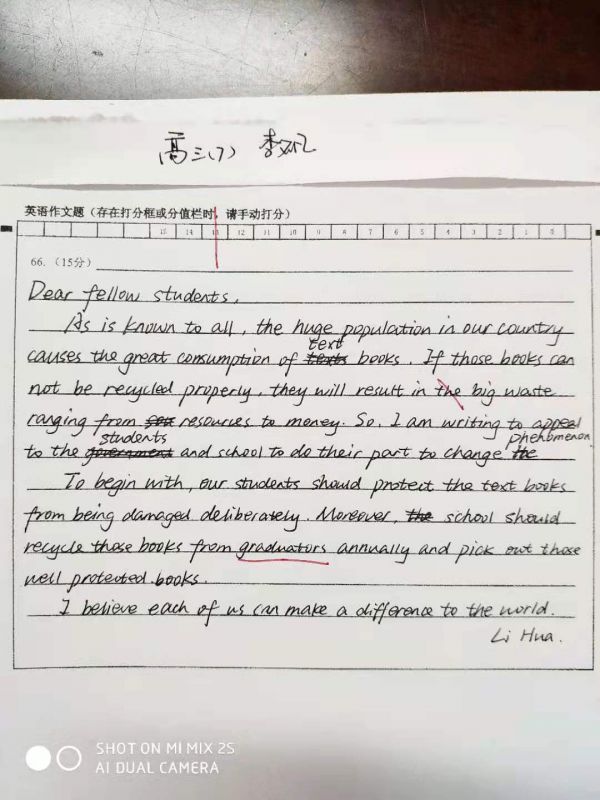 高三(7) 李
英语作文题（存在打分框或分值栏时，请手动打分）
15 14 13 12 11 10 9 8 7 6 5 4 3 2 1 0
66.（15分）
Dear fellow students,
As is known to all, the huge population in our country
causes the great consumption of text books. If those books can
not be recycled properly, they will result in the big waste
ranging from resources to money. So, I am writing to appeal
to the students and school to do their part to change the phenomenon.
To begin with, our students should protect the text books
from being damaged deliberately. Moreover, the school should
recycle those books from graduators annually and pick out those
well protected books.
I believe each of us can make a difference to the world.
Li Hua.
SHOT ON MI MIX 2S
AI DUAL CAMERA